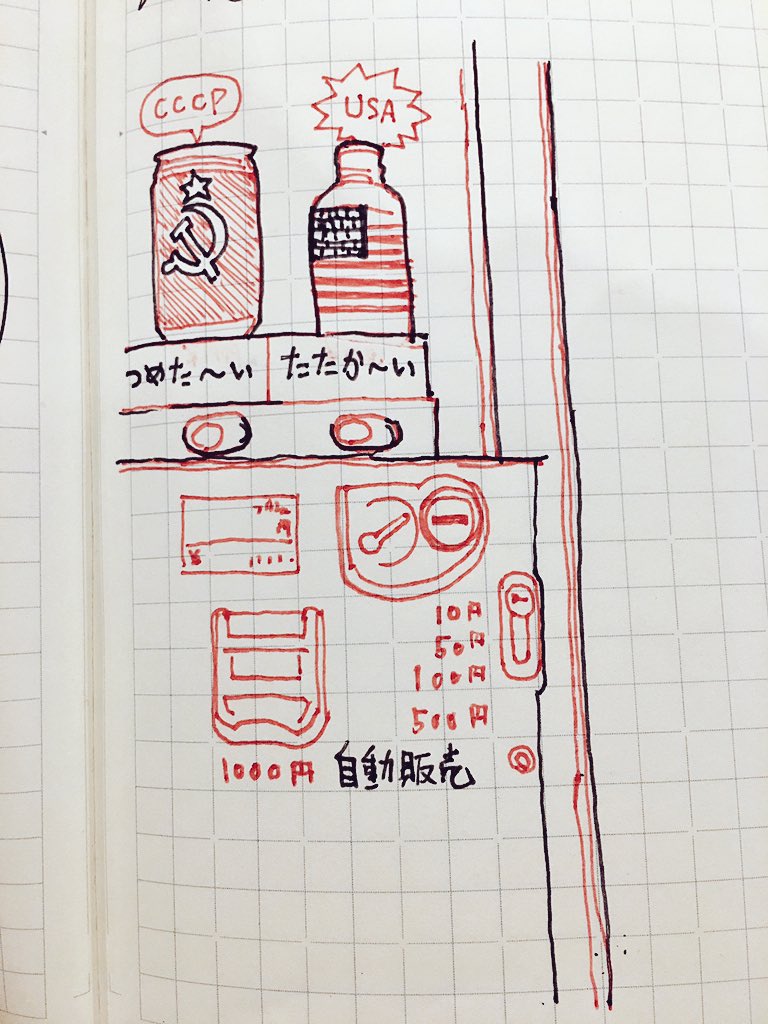 CCCP
USA
つめた～い
たたか～い
円
10円
50円
100円
500円
1000円
自動販売